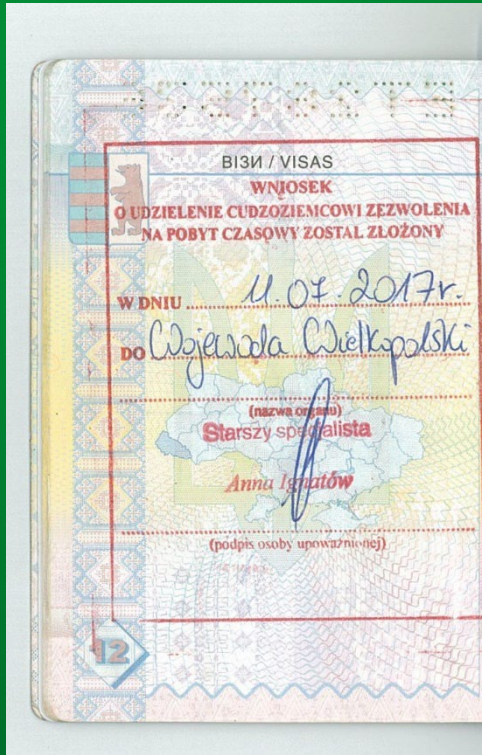 ВІЗИ / VISAS
WNIOSEK
O UDZIELENIE CUDZOZIEMCOWI ZEZWOLENIA
NA POBYT CZASOWY ZOSTAŁ ZŁOŻONY
W DNIU 11.07.2017r.
DO Wojewoda Wielkopolski
(nazwa organu)
Starszy specjalista
Anna Ignatów
(podpis osoby upoważnionej)
12